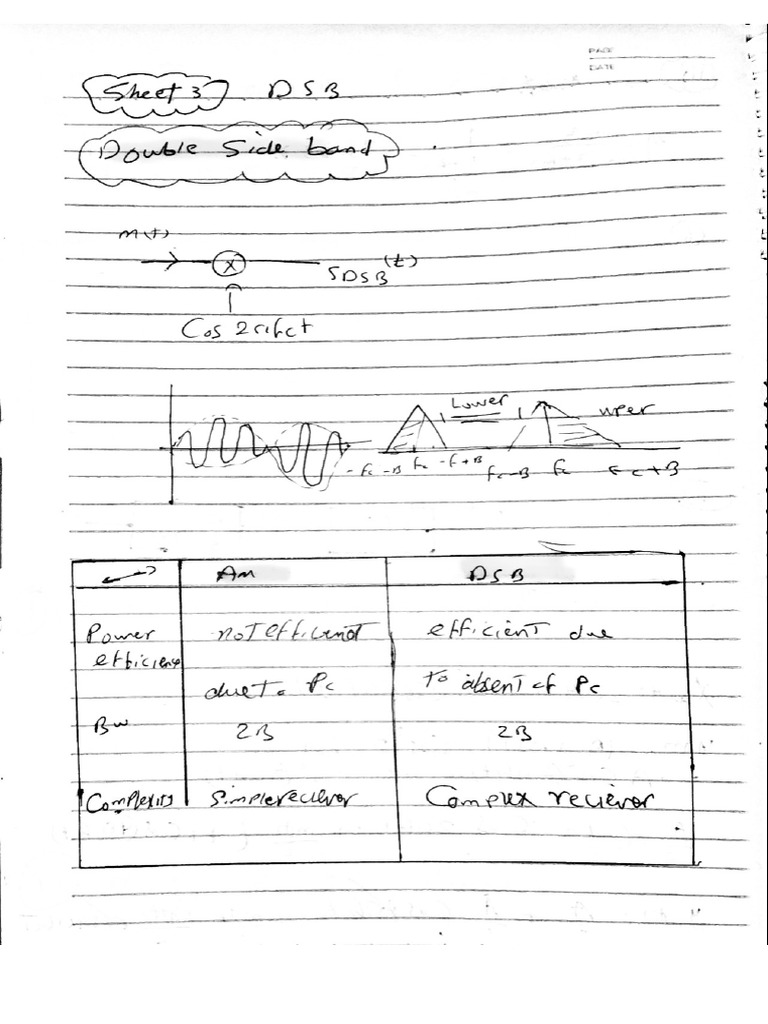 PAGE
DATE
Sheet 3 DSB
Double Side band
m(t)
X
SDSB(t)
Cos 2πfct
Lower
uper
-fc-B fc -f+B fc-B fc fc+B
Am DSB
Power not efficient efficient due
efficience
due to Pc to absent of Pc
Bw 2B 2B
Complexity Simple reciever Complex reciever